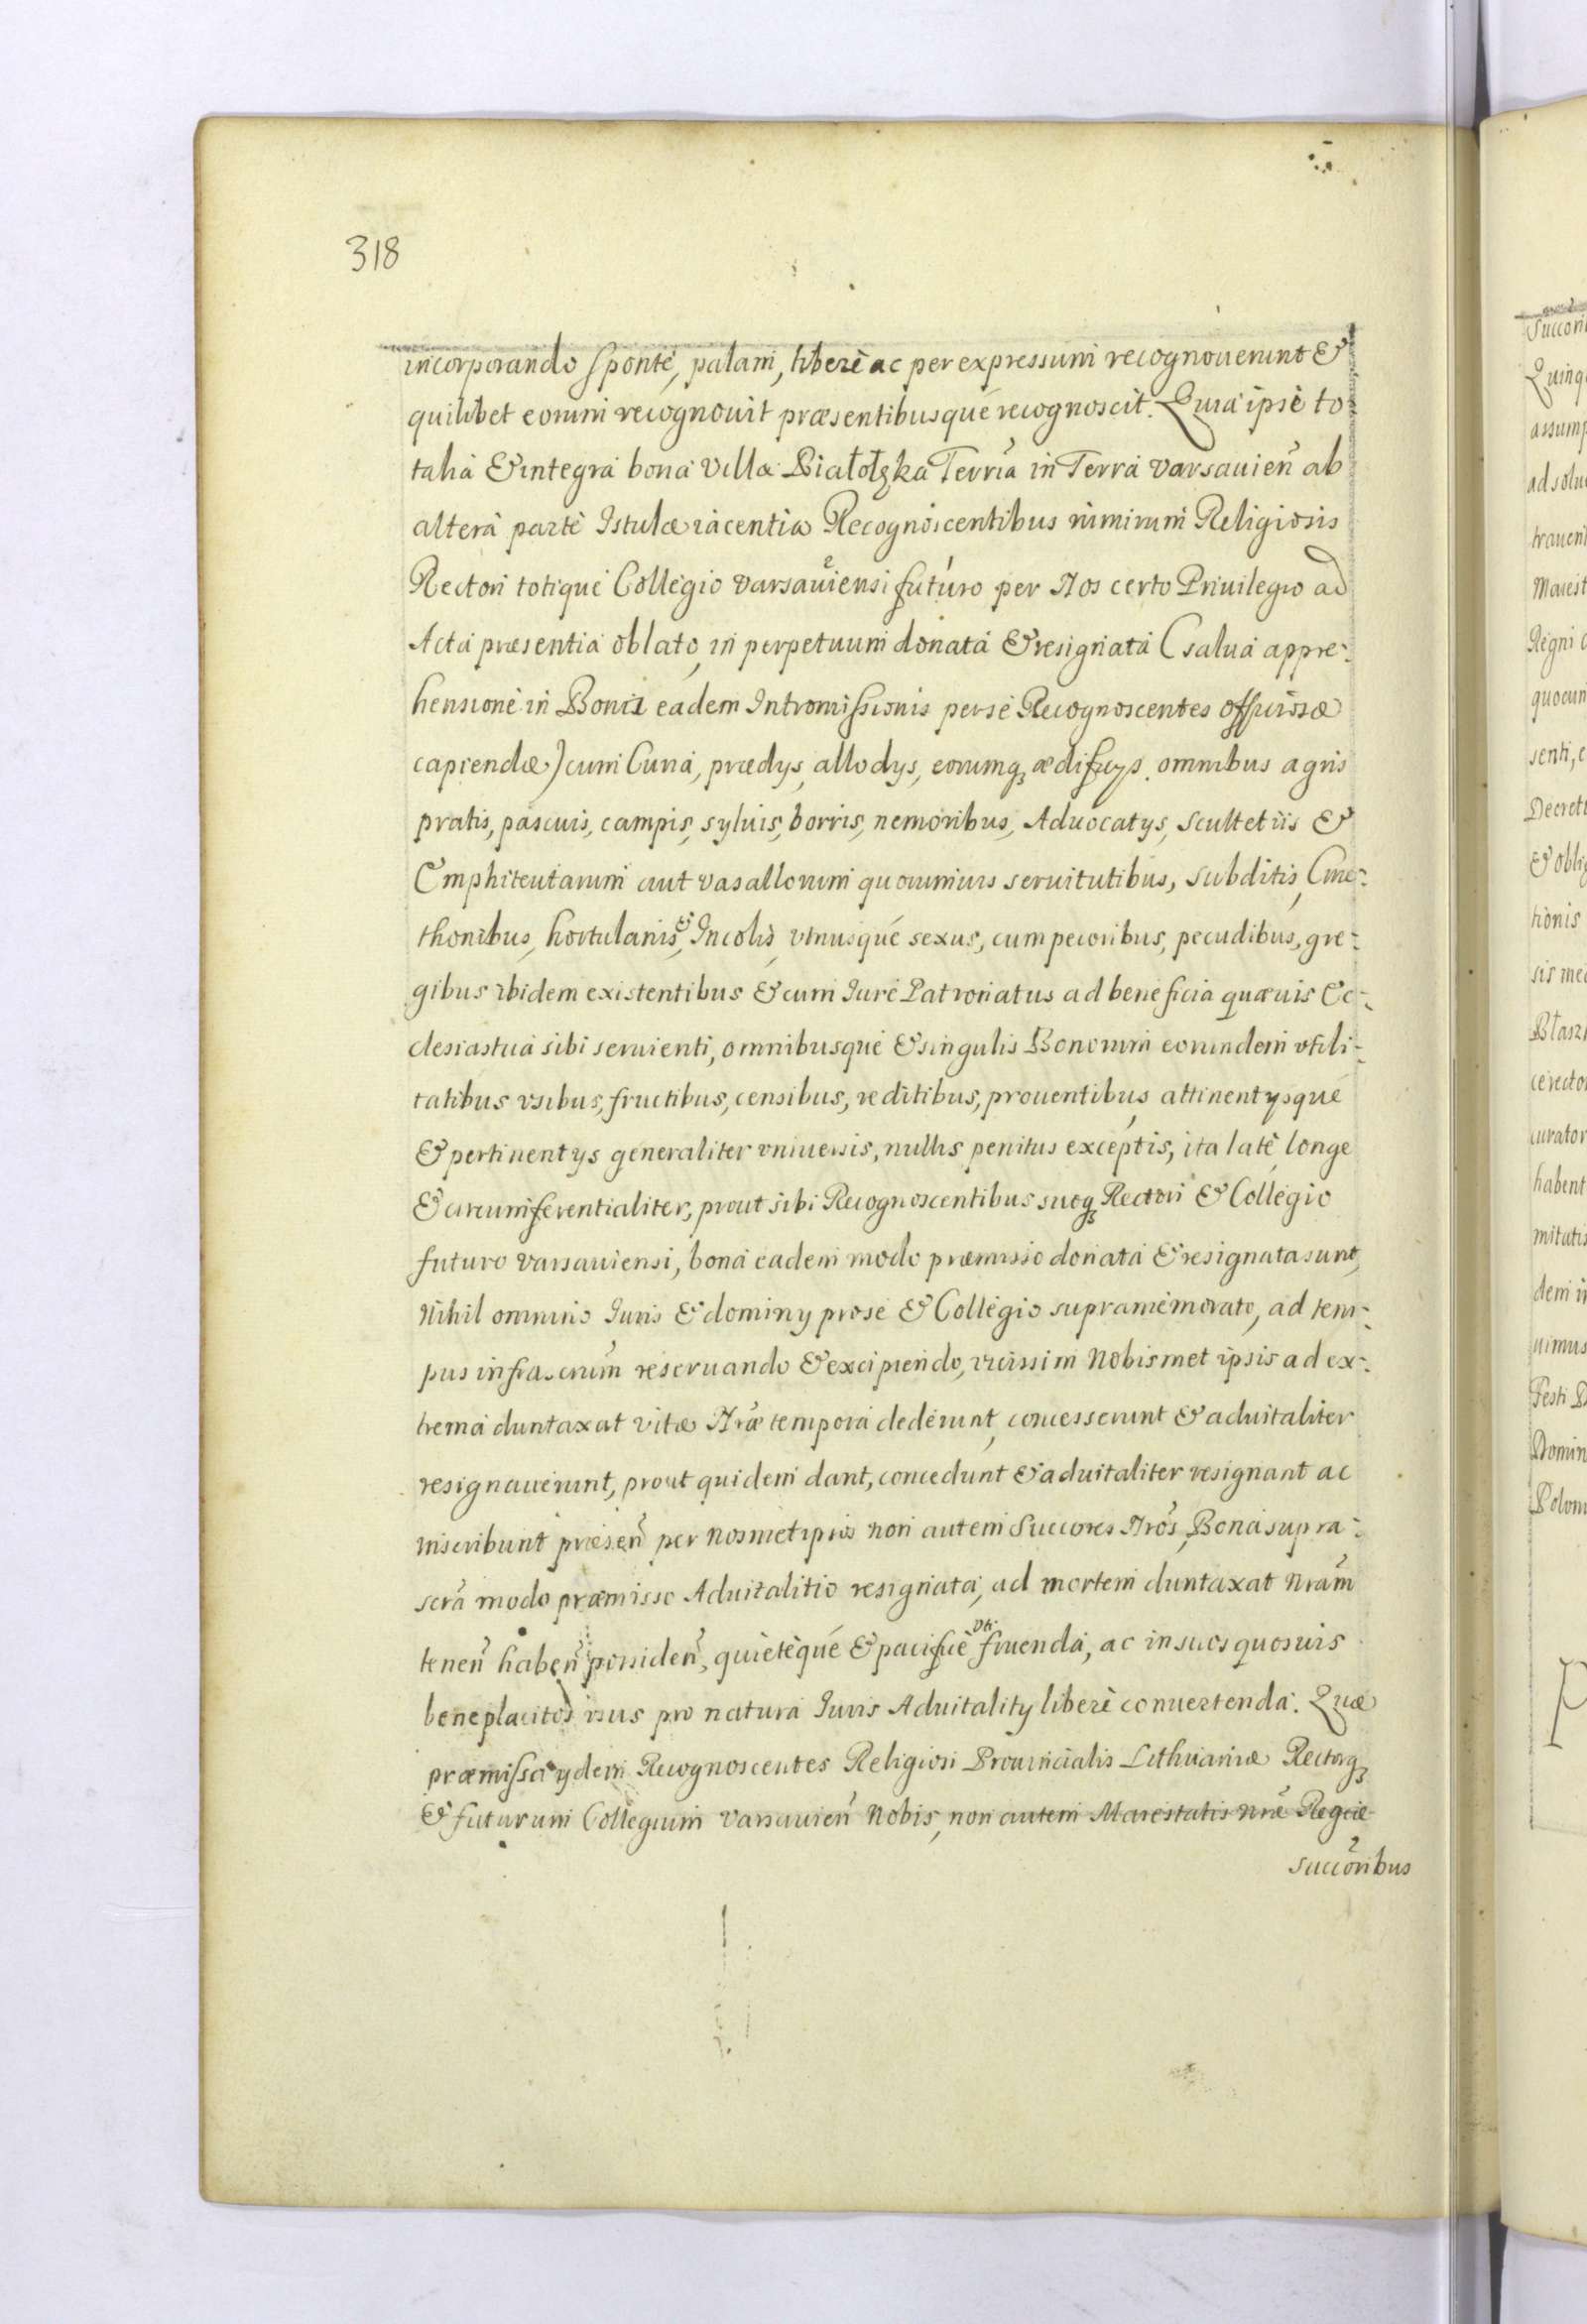 318
incorporando sponte, palam, liberè ac per expressum recognouerunt &
quilibet eorum recognouit præsentibusque recognoscit. Quia ipse to-
talia & integra bona Villæ Białołęka Terria in Terra Varsauien ab
altera parte Istulæ iacentia Recognoscentibus nimirum Religiosis
Rectori totique Collegio Varsauiensi futuro per Nos certo Priuilegio ad
Acta præsentia oblato, in perpetuum donata & resignata (salua appre-
hensione in Bona eadem Intromissionis per se Recognoscentes officiosæ
capiendæ) cum Curia, prædys, allodys, eorumq ædificys. omnibus agris
pratis, pascuis, campis, syluis, borris, nemoribus, Aduocatys, scultetiis &
Emphiteutarum aut vasallorum quorumuis seruitutibus, subditis, Cme-
thonibus, hortulanis, & Incolis vtriusque sexus, cum pecoribus, pecudibus, gre-
gibus ibidem existentibus & cum Iure Patronatus ad beneficia quæuis Ec-
clesiastica sibi seruienti, omnibusque & singulis Bonorum eorundem vtili-
tatibus vsibus, fructibus, censibus, reditibus, prouentibus attinentysque
& pertinentys generaliter vniuersis, nullis penitus exceptis, ita late longe
& circumferentialiter, prout sibi Recognoscentibus suoq Rectori & Collegio
futuro Varsauiensi, bona eadem modo præmisso donata & resignata sunt,
Nihil omnino Iuris & dominy pro se & Collegio supramemorato, ad tem-
pus infrascrium reseruando & excipiendo, vicissim Nobismet ipsis ad ex-
trema duntaxat vitæ Nræ tempora dederunt, concesserunt & aduitaliter
resignauerunt, prout quidem dant, concedunt & aduitaliter resignant ac
inscribunt præsen per nosmetipsos non autem Succores Nros, Bona supra-
scra modo præmisso Aduitalitio resignata, ad mortem duntaxat nram
tenen haben possiden, quieteque & pacifice vti fruenda, ac in suos quosuis
beneplacitos vsus pro natura Iuris Aduitality libere conuertenda. Quæ
præmissa ydem Recognoscentes Religiosi Prouincialis Lithuaniæ Rectorq
& futurum Collegium Varsauien Nobis, non autem Maiestatis nræ Regiæ
succoribus